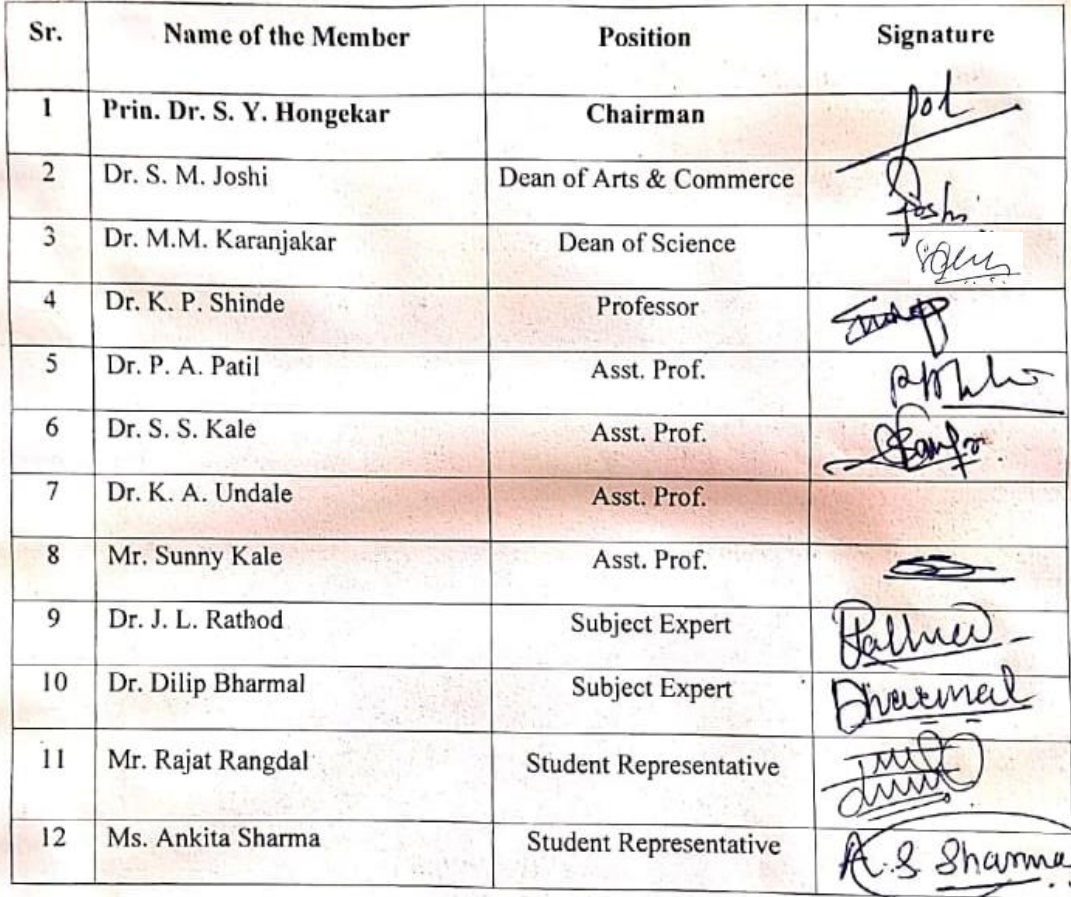 Sr. Name of the Member Position Signature
1 Prin. Dr. S. Y. Hongekar Chairman
2 Dr. S. M. Joshi Dean of Arts & Commerce Joshi
3 Dr. M.M. Karanjakar Dean of Science
4 Dr. K. P. Shinde Professor
5 Dr. P. A. Patil Asst. Prof.
6 Dr. S. S. Kale Asst. Prof.
7 Dr. K. A. Undale Asst. Prof.
8 Mr. Sunny Kale Asst. Prof.
9 Dr. J. L. Rathod Subject Expert
10 Dr. Dilip Bharmal Subject Expert
11 Mr. Rajat Rangdal Student Representative
12 Ms. Ankita Sharma Student Representative A.S Sharma